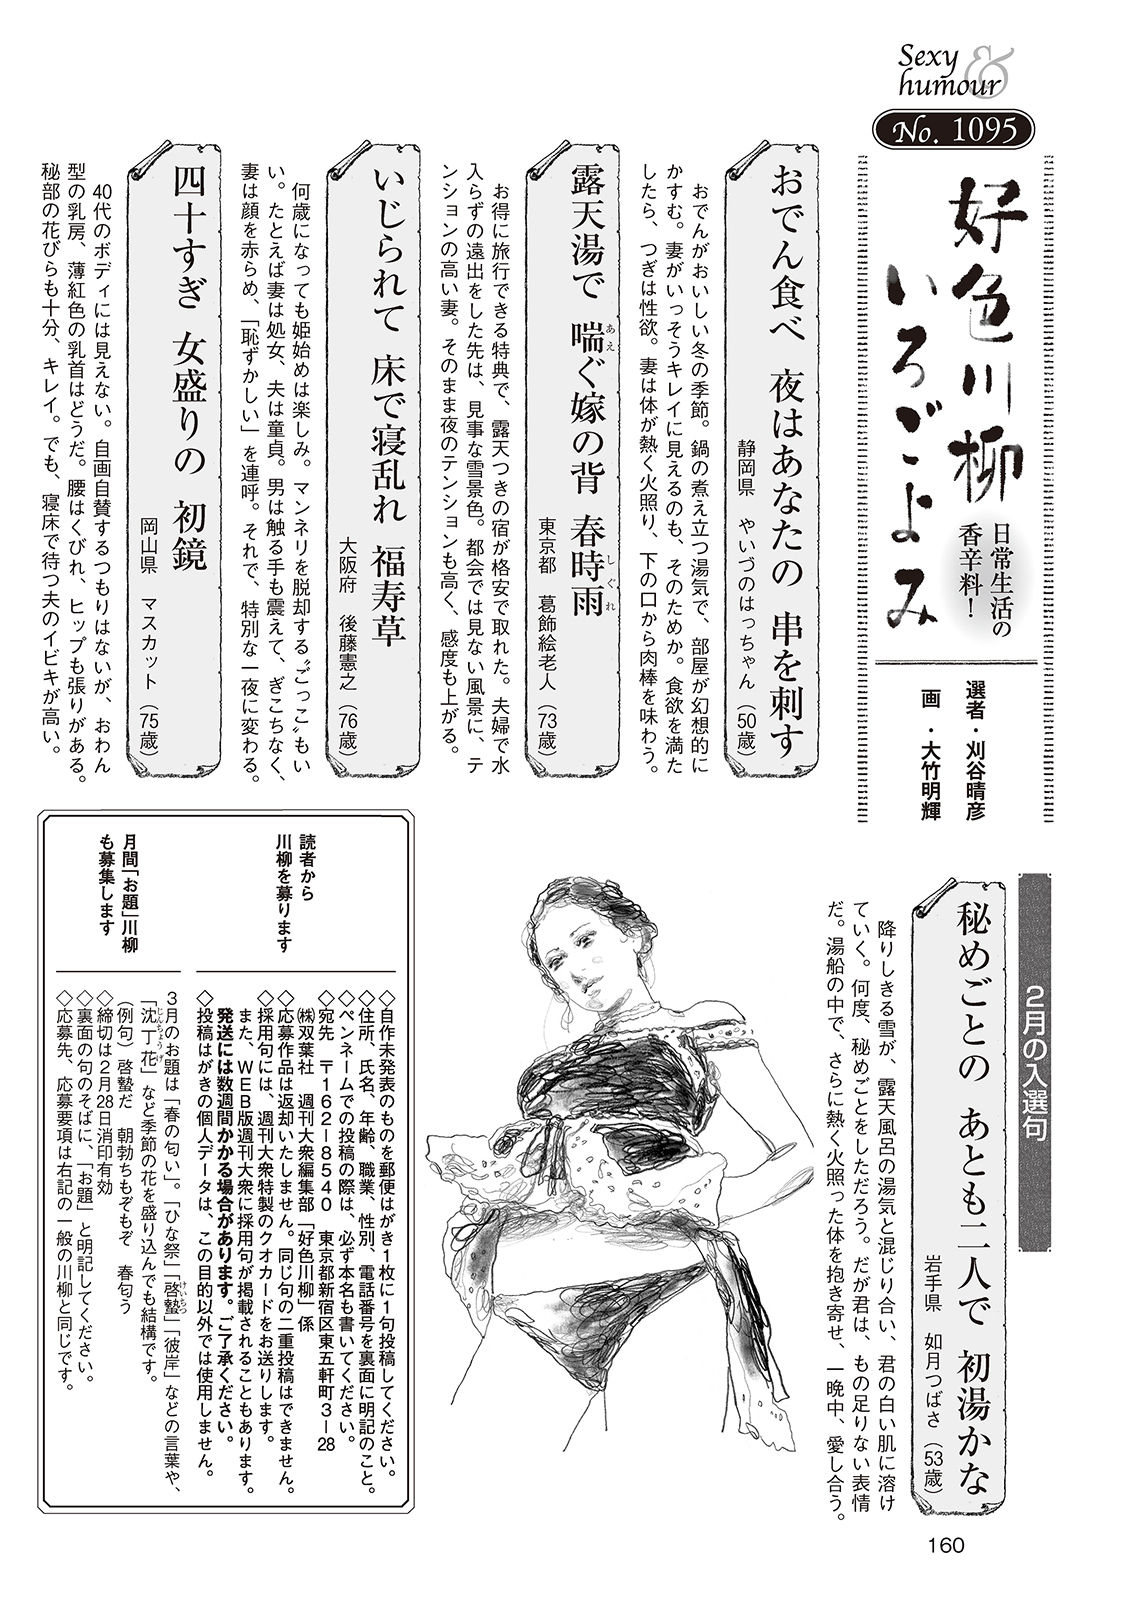 Sexy & humour
No. 1095
好色川柳
いろごよみ
日常生活の
香辛料！
選者・刈谷晴彦
画・大竹明輝
おでん食べ　夜はあなたの　串を刺す
静岡県　やいづのはっちゃん（50歳）
おでんがおいしい冬の季節。鍋の煮え立つ湯気で、部屋が幻想的に
かすむ。妻がいっそうキレイに見えるのも、そのためか。食欲を満た
したら、つぎは性欲。妻は体が熱く火照り、下の口から肉棒を味わう。
露天湯で　喘ぐ嫁の背　春時雨
あえ
しぐれ
東京都　葛飾絵老人（73歳）
お得に旅行できる特典で、露天つきの宿が格安で取れた。夫婦で水
入らずの遠出をした先は、見事な雪景色。都会では見ない風景に、テ
ンションの高い妻。そのまま夜のテンションも高く、感度も上がる。
いじられて　床で寝乱れ　福寿草
大阪府　後藤憲之（76歳）
何歳になっても姫始めは楽しみ。マンネリを脱却する〝ごっこ〟もい
い。たとえば妻は処女、夫は童貞。男は触る手も震えて、ぎこちなく、
妻は顔を赤らめ、「恥ずかしい」を連呼。それで、特別な一夜に変わる。
四十すぎ　女盛りの　初鏡
岡山県　マスカット（75歳）
40代のボディには見えない。自画自賛するつもりはないが、おわん
型の乳房、薄紅色の乳首はどうだ。腰はくびれ、ヒップも張りがある。
秘部の花びらも十分、キレイ。でも、寝床で待つ夫のイビキが高い。
2月の入選句
秘めごとの　あとも二人で　初湯かな
岩手県　如月つばさ（53歳）
降りしきる雪が、露天風呂の湯気と混じり合い、君の白い肌に溶け
ていく。何度、秘めごとをしただろう。だが君は、もの足りない表情
だ。湯船の中で、さらに熱く火照った体を抱き寄せ、一晩中、愛し合う。
読者から
川柳を募ります
◇自作未発表のものを郵便はがき1枚に1句投稿してください。
◇住所、氏名、年齢、職業、性別、電話番号を裏面に明記のこと。
◇ペンネームでの投稿の際は、必ず本名も書いてください。
◇宛先　〒162-8540　東京都新宿区東五軒町3-28
㈱双葉社　週刊大衆編集部「好色川柳」係
◇応募作品は返却いたしません。同じ句の二重投稿はできません。
◇採用句には、週刊大衆特製のクオカードをお送りします。
また、WEB版週刊大衆に採用句が掲載されることもあります。
発送には数週間かかる場合があります。ご了承ください。
◇投稿はがきの個人データは、この目的以外では使用しません。
月間「お題」川柳
も募集します
3月のお題は「春の匂い」。「ひな祭」「啓蟄」「彼岸」などの言葉や、
けいちつ
「沈丁花」など季節の花を盛り込んでも結構です。
じんちょうげ
（例句）啓蟄だ　朝勃ちもぞもぞ　春匂う
◇締切は2月28日消印有効
◇裏面の句のそばに、「お題」と明記してください。
◇応募先、応募要項は右記の一般の川柳と同じです。
160